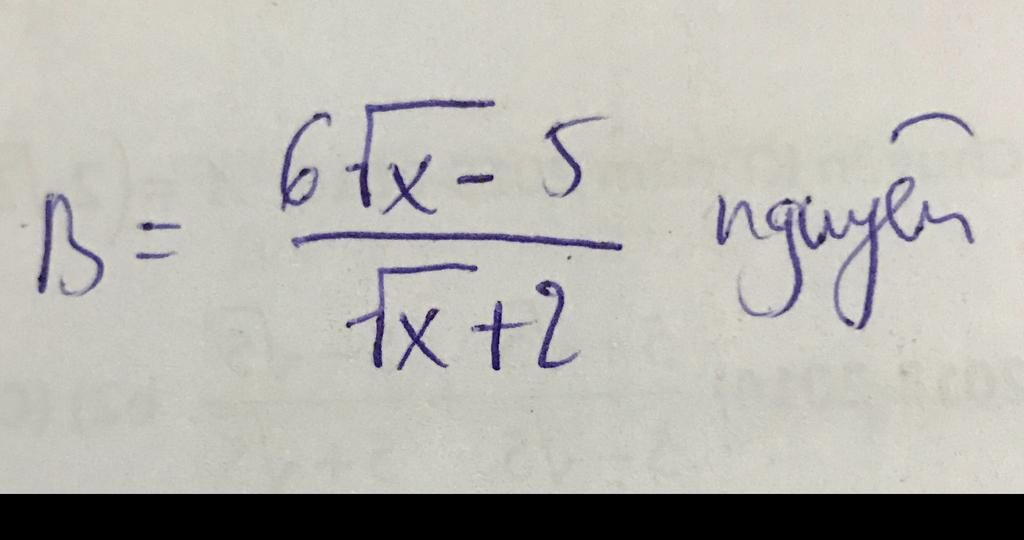 B = \frac{6\sqrt{x} - 5}{\sqrt{x} + 2} nguyên